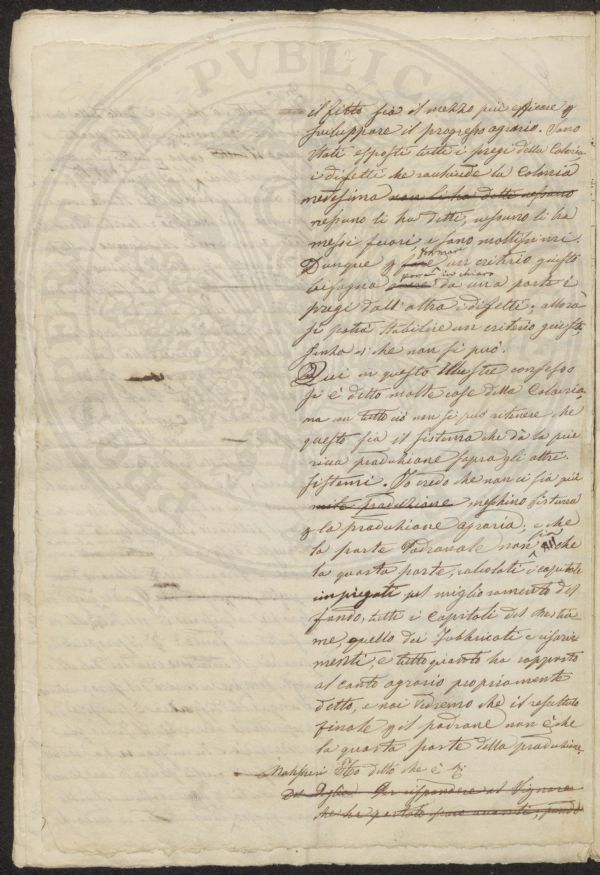 PVBLIC
il fitto sia il mezzo più efficace p
sviluppare il progresso agrario. Sono
stati esposti tutti i pregi della Colonia
i difetti che racchiude la Colonia
medesima non li ha detti nessuno
nessuno li ha detti, nessuno li ha
messi fuori, e sono moltissimi.
formare
Dunque p fare un criterio giusto
porre in chiaro
bisogna da una parte i
pregi dall'altra i difetti; allora
si potrà stabilire un criterio giusto,
senza di che non si può.
Qui in questo illustre consesso
si è detto molte cose della Colonia,
ma con tutto ciò non si può ritenere che
questo sia il sistema che dà la più
ricca produzione sopra gli altri
sistemi. Io credo che non ci sia più
produzione meschino sistema
p la produzione agraria; e che
la parte Padronale non sia che
la quarta parte; calcolati i capitali
impiegati pel miglioramento del
fondo, tutti i Capitali del bestia-
me, quello dei Fabbricati e
menti, e tutto quanto ha rapporto
al conto agrario propriamente
detto, e noi vedremo che il resultato
finale p il padrone non è che
la quarta parte della produzione.
Ho detto che è
Per rispondere al Signore
che ha portato